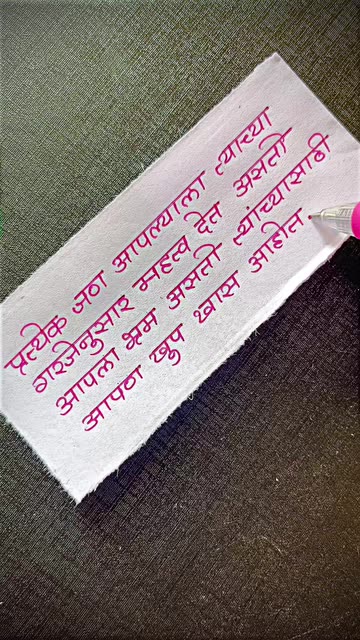 प्रत्येक जण आपल्याला त्याच्या
गरजेनुसार महत्व देत असतो
आपला भ्रम असतो त्यांच्यासाठी
आपण खुप खास आहोत